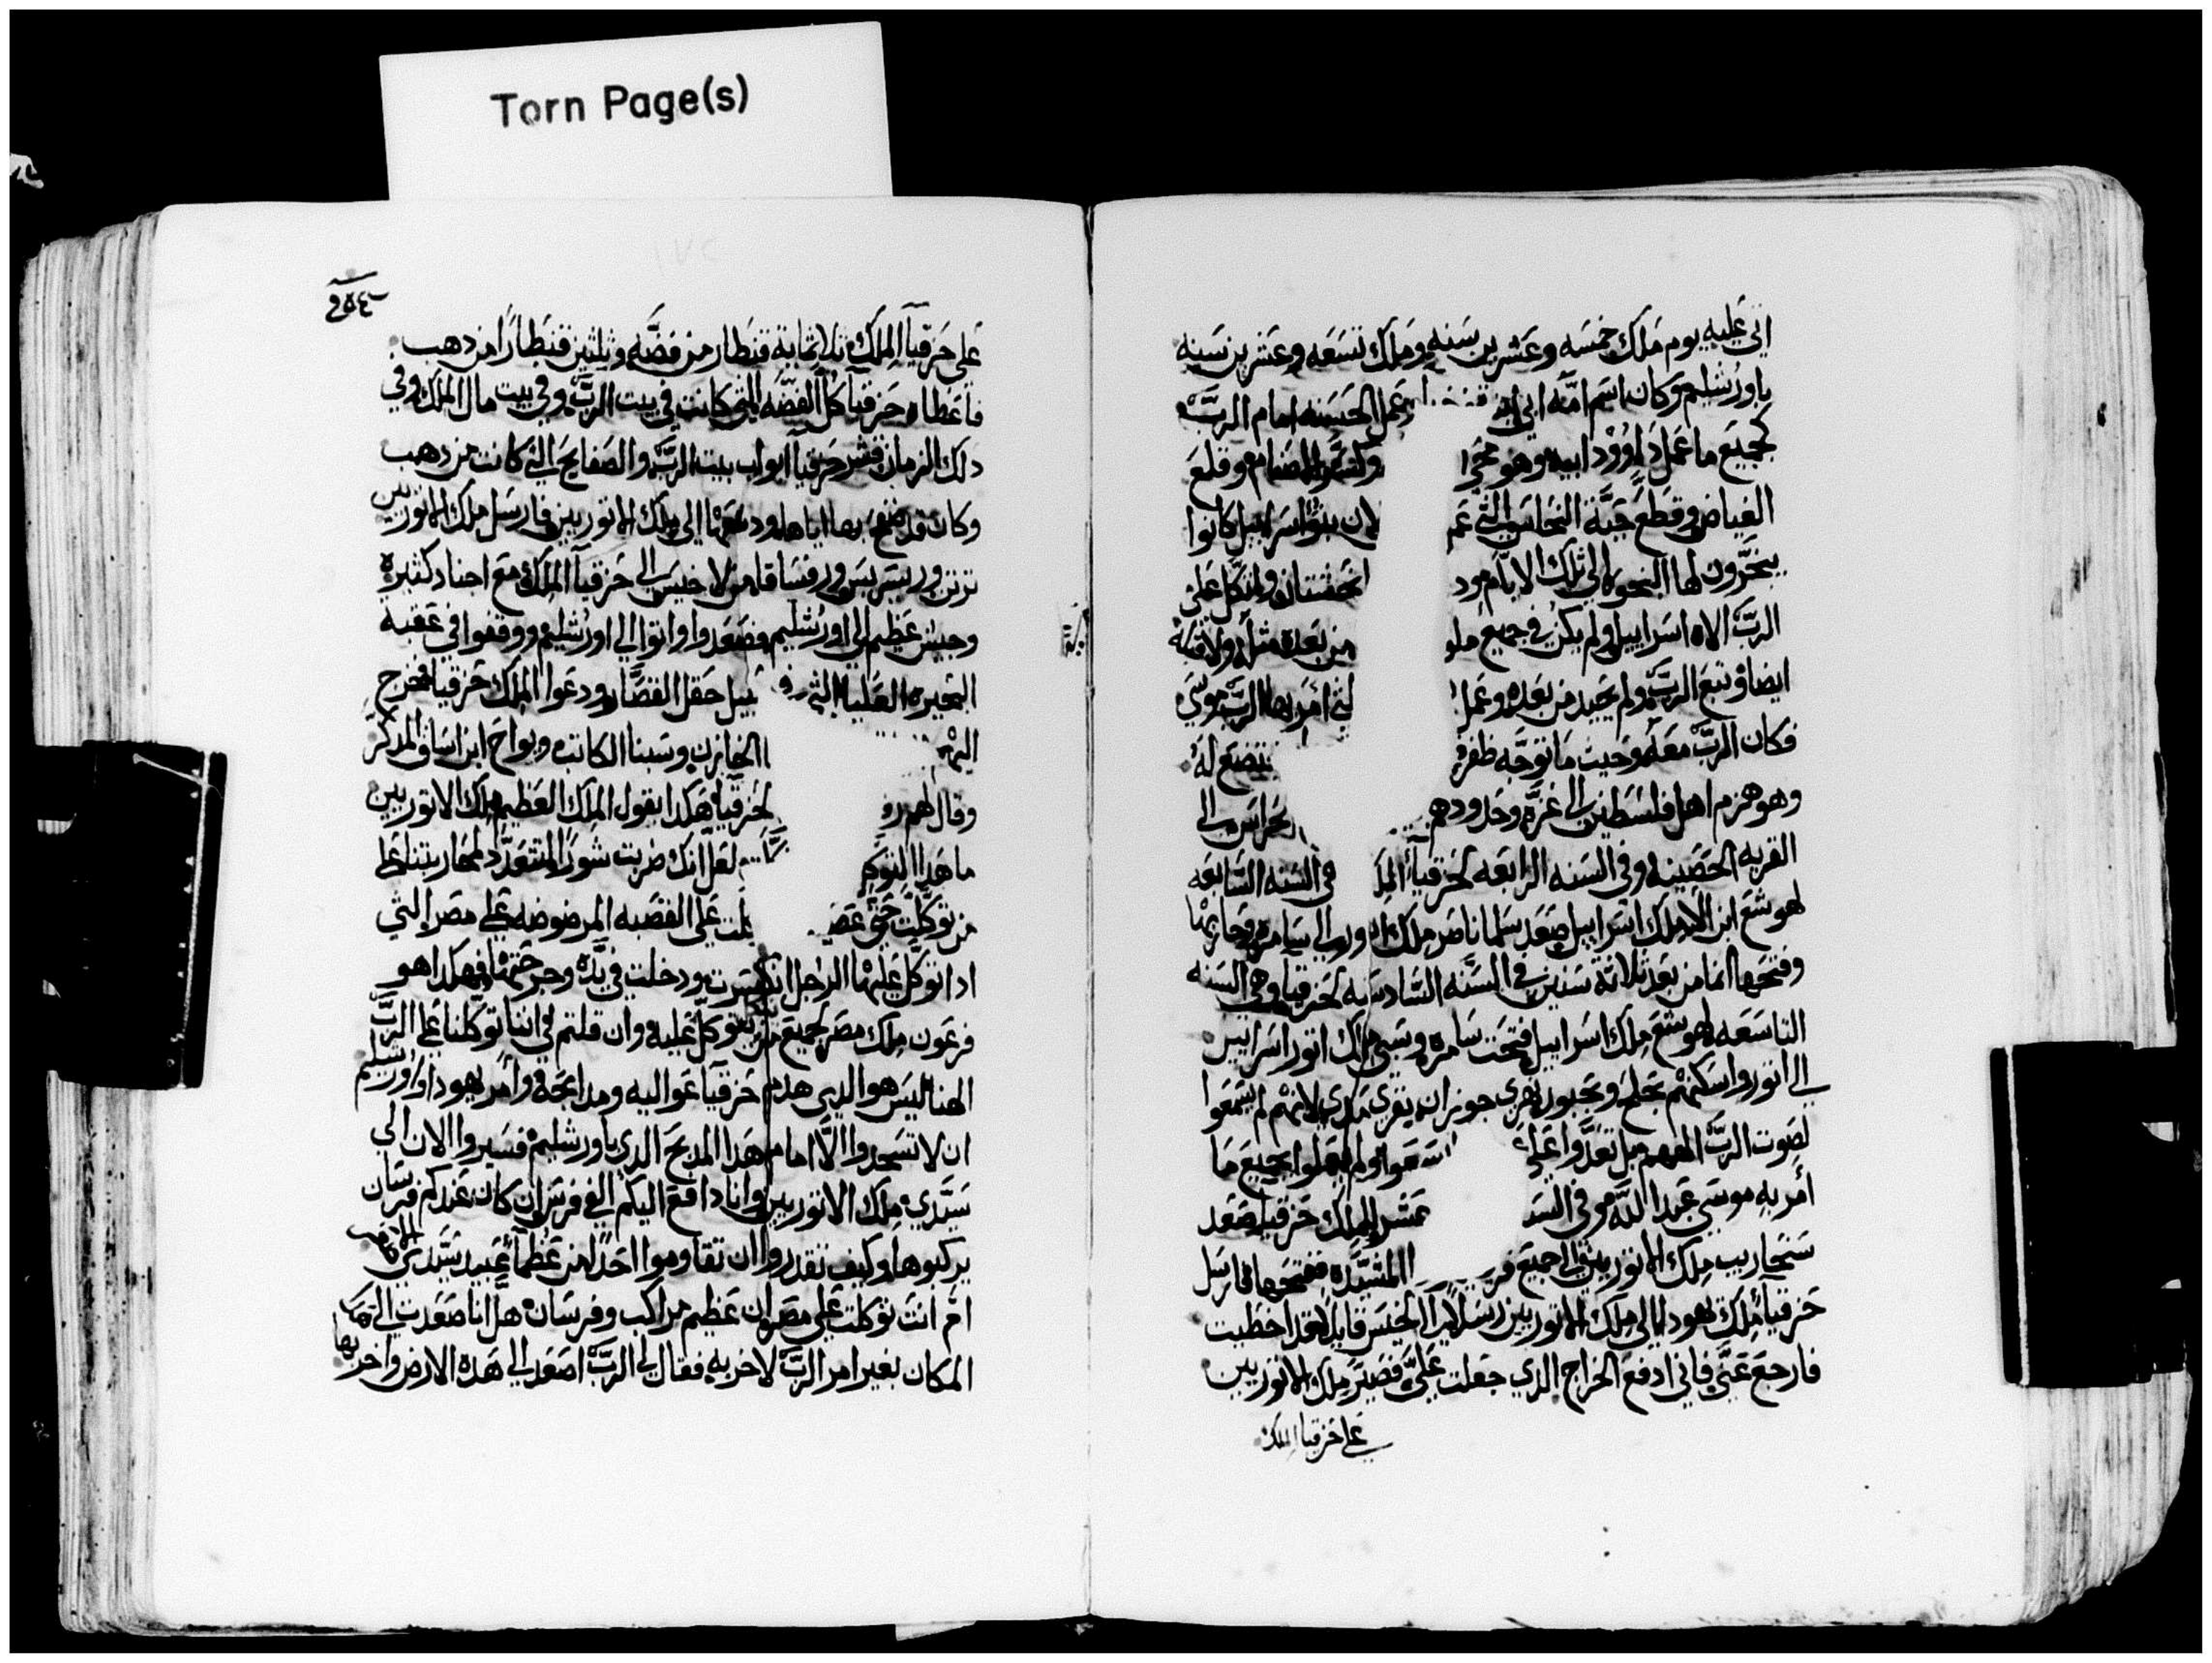 Torn Page(s)
اتى عليه يوم ملك خمسه وعشرين سنه وملك تسعه وعشرين سنه
باورشليم وكان اسم امه ابي وعمل الحسنه امام الرب
كجميع ما عمل داوود ابيه وهو محى وكسر الاصنام وقلع
الغياض وقطع حية النحاس التي عم لان بنوا اسراييل كانوا
يبخرون لها البخور الى تلك الايام ود نحشتان واتكل على
الرب الاه اسراييل ولم يكن في جميع ملو من بعده مثله ولا قبله
ايضا وتبع الرب ولم يحيد من بعده وعمل لتي امر بها الرب موسى
فكان الرب معه وحيث ما توجه ظفر تنضع له
وهو هزم اهل فلسطين الى غزه وحدودهم لحراس الى
القريه الحصينه وفي السنه الرابعه لحزقيا الملك في السنه السابعه
لهوشع ابن الا ملك اسراييل صعد سلماناصر ملك اتور الى سامره وحاربها
وفتحها انما من بعد ثلاثة سنين في السنه السادسه لحزقيا وهي السنه
التاسعه لهوشع ملك اسراييل فتحت سامره وسبى ملك اتور اسراييل
الى اتور واسكنهم بحلح وبحبور نهري جوزان بقرى مدي لانهم لم يسمعوا
لصوت الرب الههم بل تعدوا على سمعوا ولم يعملوا بجميع ما
امر به موسى عبد الله وفي السنه عشر للملك حزقيا صعد
سنحاريب ملك الاتوريين الى جميع قر المشيده ففتحها فارسل
حزقيا ملك يهودا الى ملك الاتوريين رسلا الى لاخيس قايلا قد اخطيت
فارجع عني فاني ادفع الخراج الذي جعلت علي فصير ملك الاتوريين
على حزقيا الملك
٢٥٤
على حزقيا الملك ثلاثماية قنطار من فضه وثلثين قنطارا من دهب
فاعطاه حزقيا كل الفضه التي كانت في بيت الرب وفي بيت مال الملك وفي
دلك الزمان قشر حزقيا ابواب بيت الرب والصفايح التي كانت من دهب
وكان قد صفح بها اياها ودفعها الى ملك الاتوريين فارسل ملك الاتوريين
ترتن وربسريس وربساقا من لاخيس الى حزقيا الملك مع اجناد كثيره
وجيش عظيم الى اورشليم فصعدوا واتوا الى اورشليم ووقفوا في عقبة
البحيره العليا التي في سبيل حقل القصار ودعوا الملك حزقيا فخرج
اليهم الخازن وسبنا الكاتب ويواح ابن اساف المذكر
وقال لهم ر لحزقيا هكدا يقول الملك العظيم ملك الاتوريين
ما هدا التوكل لعل انك ضربت شورا لتتعدد لمحاربتنا على
من توكلت حتى عص كلت على القصبه المرضوضه على مصر التي
ادا توكل عليها الرجل انكسرت ودخلت في يده وجرحتها فهكدا هو
فرعون ملك مصر لجميع من يتوكل عليه وان قلتم لي اننا توكلنا على الرب
الهنا اليس هو الدي هدم حزقيا عواليه ومدابحه وامر يهودا واورشليم
ان لا تسجدوا الا امام هدا المدبح الدي باورشليم فسيروا الان الى
سيدي ملك الاتوريين وانا دافع اليكم الفي فرس ان كان عندكم فرسان
يركبوها وكيف تقدروا ان تقاوموا احدا من عظما عبيد سيدي الاصاغر
ام انت توكلت على مصر ان عظيم مراكب وفرسان هل انا صعدت الى هدا
المكان بغير امر الرب لاخربه فقال لي الرب اصعد الى هده الارض واخربها